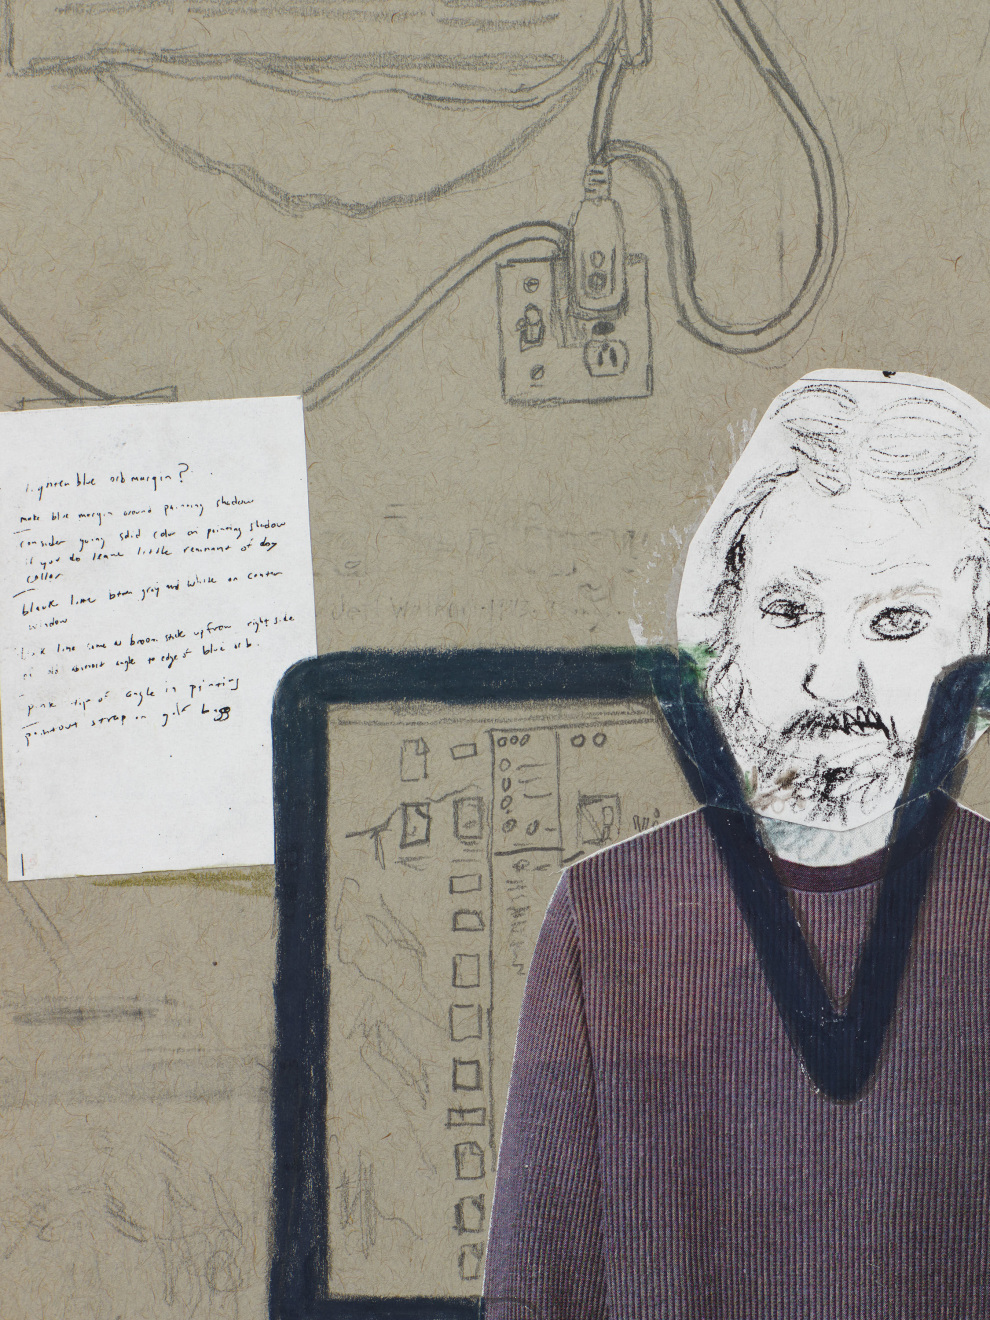 1. green blue orb margin?
make blue margin around painting shadow
consider going solid color on painting shadow
if you do leave little remnant of dog
collar
black line btwn gray and white on center
window
line same as broom stick up from right side
angle to edge of blue orb.
pink tip of angle in painting
strap on golf bag